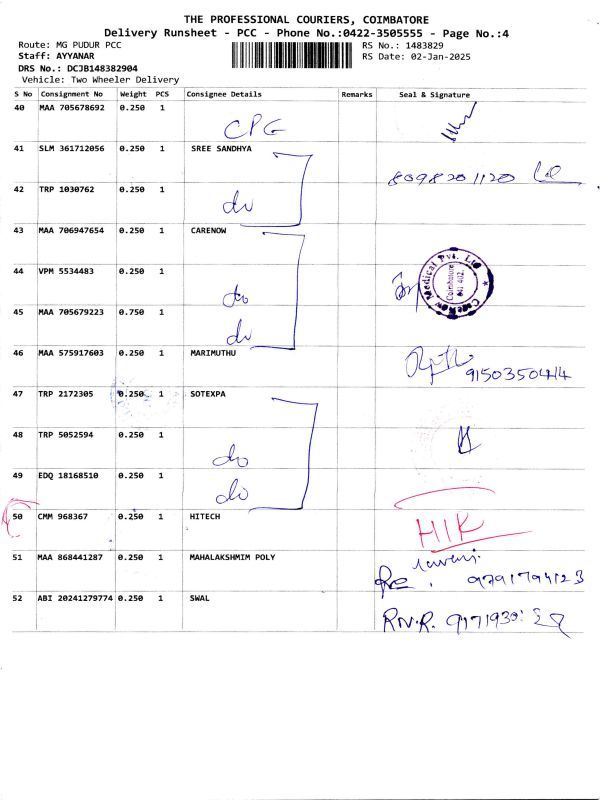 THE PROFESSIONAL COURIERS, COIMBATORE
Delivery Runsheet - PCC - Phone No.:0422-3505555 - Page No.:4
Route: MG PUDUR PCC
RS No.: 1483829
Staff: AYYANAR
RS Date: 02-Jan-2025
DRS No.: DCJB148382904
Vehicle: Two Wheeler Delivery
S No Consignment No Weight PCS Consignee Details Remarks Seal & Signature
40 MAA 705678692 0.250 1
CPG
41 SLM 361712056 0.250 1 SREE SANDHYA
8098201120
42 TRP 1030762 0.250 1
do
43 MAA 706947654 0.250 1 CARENOW
44 VPM 5534483 0.250 1
Medical Pvt. Ltd
Coimbatore
do
45 MAA 705679223 0.750 1
do
46 MAA 575917603 0.250 1 MARIMUTHU
9150350414
47 TRP 2172305 0.250 1 SOTEXPA
48 TRP 5052594 0.250 1
do
49 EDQ 18168510 0.250 1
do
50 CMM 968367 0.250 1 HITECH
HIK
51 MAA 868441287 0.250 1 MAHALAKSHMIM POLY
9791794123
52 ABI 20241279774 0.250 1 SWAL
RN.R.